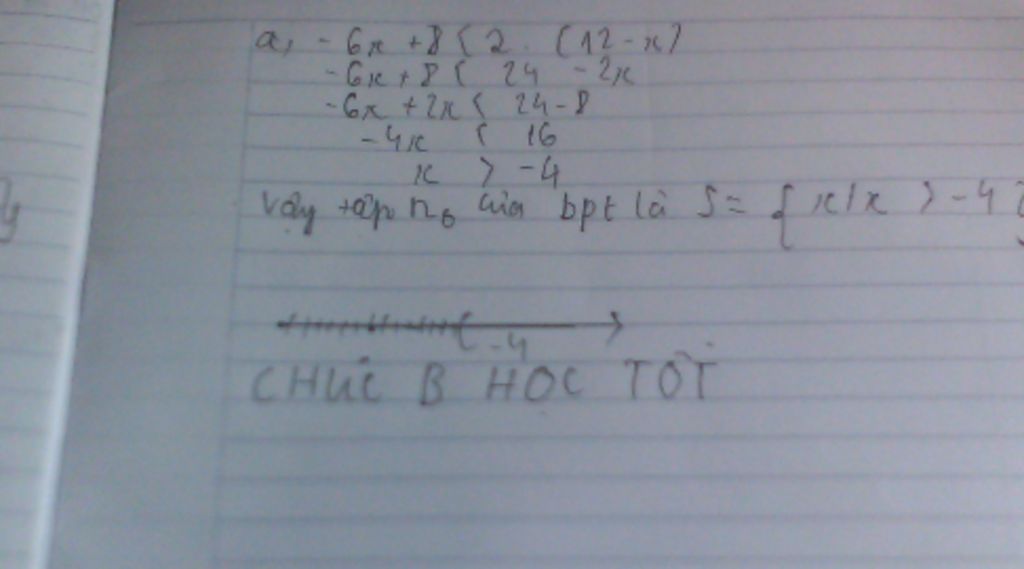 a, - 6x + 8 < 2. (12 - x)
- 6x + 8 < 24 - 2x
- 6x + 2x < 24 - 8
- 4x < 16
x > - 4
Vậy tập n₀ của bpt là S = { x / x > - 4 }
- 4
CHÚC B HỌC TỐT